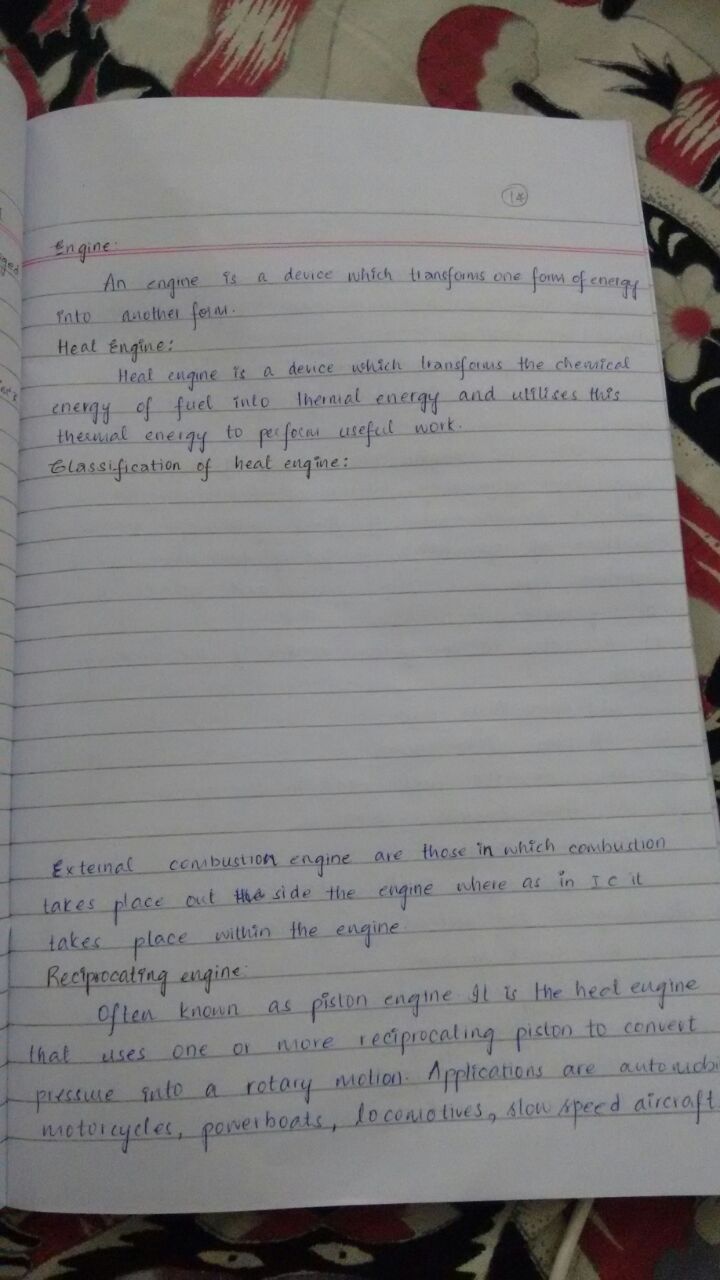 14
Engine:
An engine is a device which transforms one form of energy
into another form.
Heat Engine:
Heat engine is a device which transforms the chemical
energy of fuel into thermal energy and utilises this
thermal energy to perform useful work.
Classification of heat engine:
External combustion engine are those in which combustion
takes place out side the engine where as in I C it
takes place within the engine.
Reciprocating engine:
Often known as piston engine It is the heat engine
that uses one or more reciprocating piston to convert
pressure into a rotary motion. Applications are automobi
motorcycles, powerboats, locomotives, slow speed aircraft